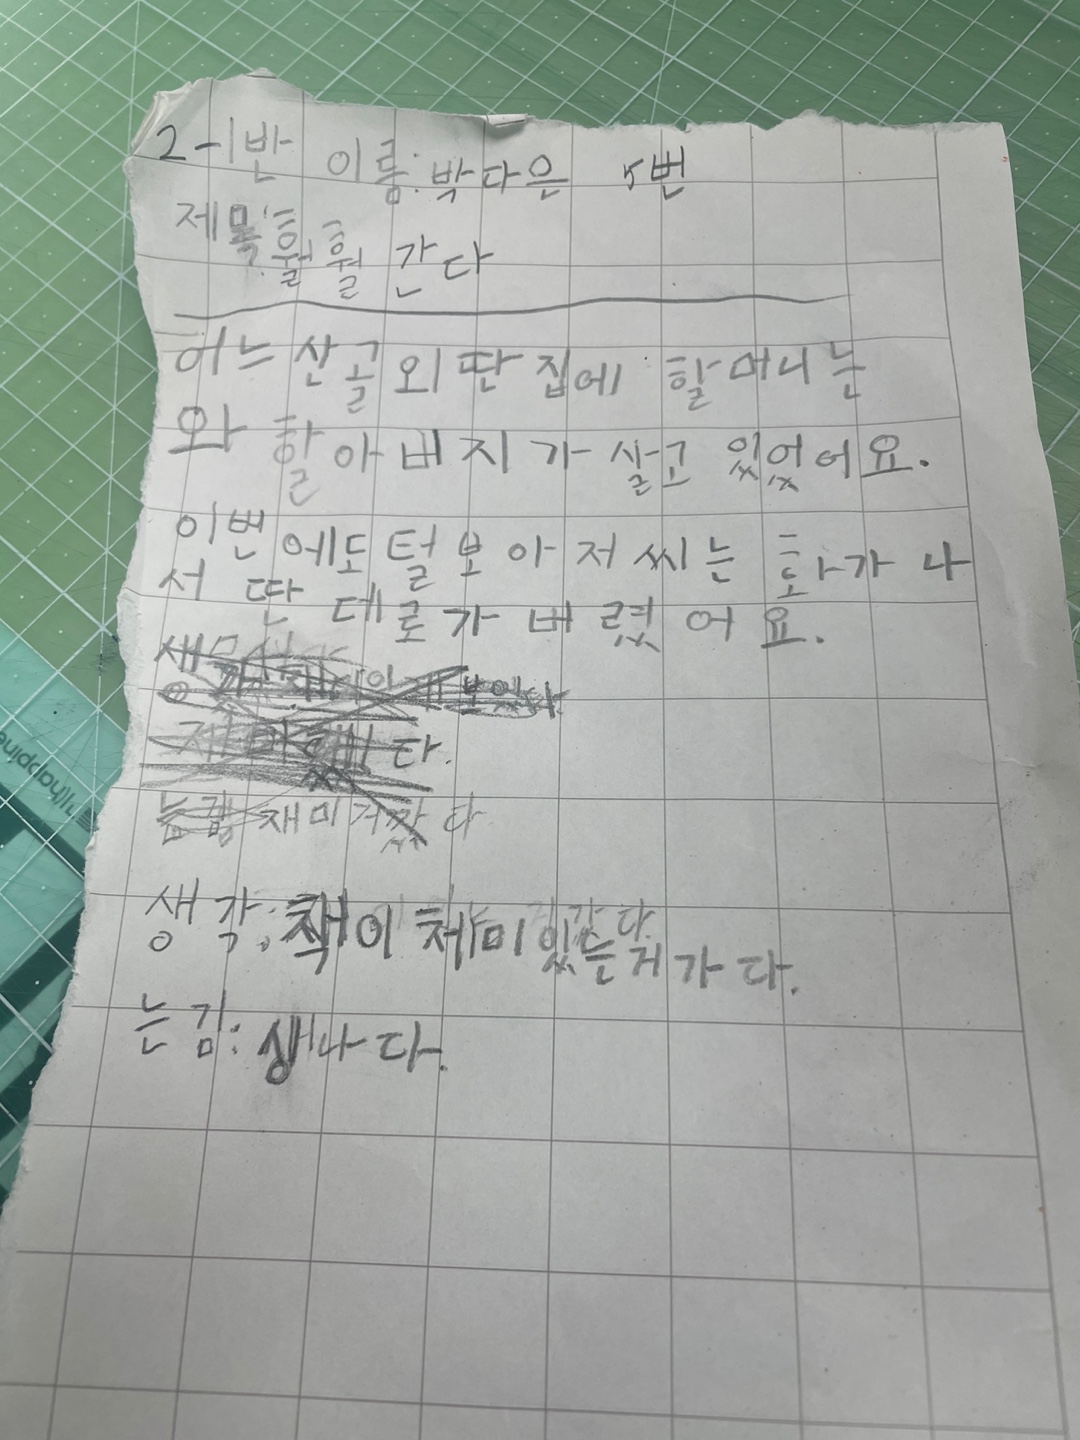 2-1반 이름:박다은 5번
제목:훨훨 간다
어느산골외딴집에 할머니는
와할아버지가살고있었어요.
이번에도털보아저씨는 화가나
서 딴데로가버렸어요.
다.
재미거 다
생각:책이재미있는거가다.
는김:생나다.